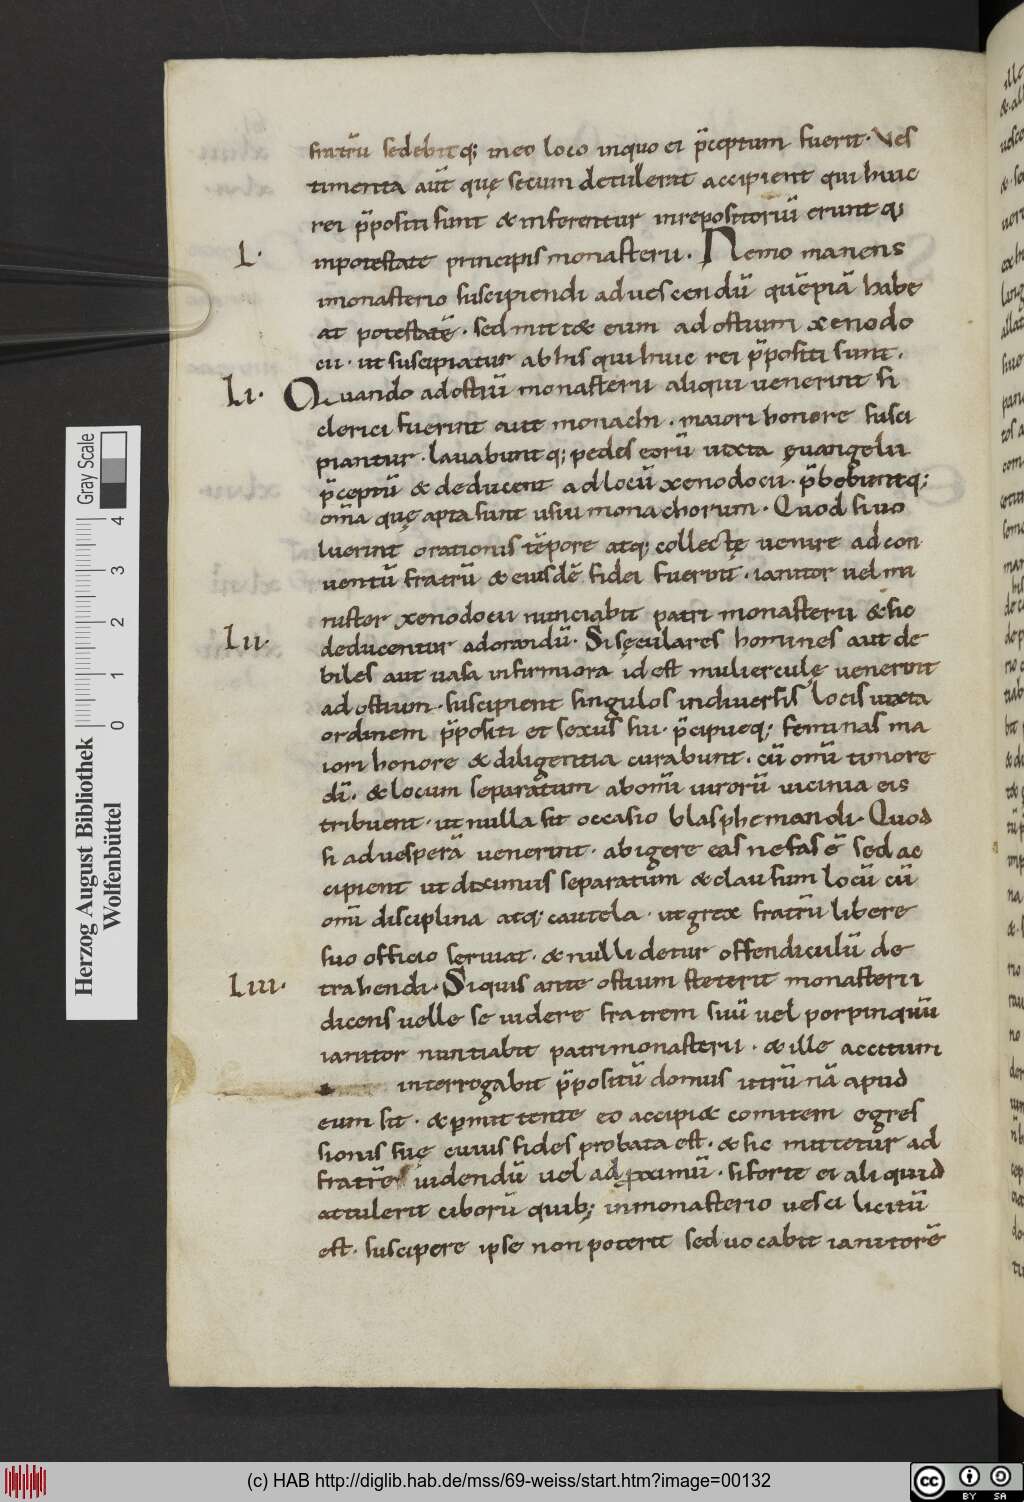 fratrū sedebitq; in eo loco inquo ei p̄ceptum fuerit· Ves
timenta aut̄ quę secum detulerat accipient qui huic
rei p̄positi sunt & inferentur inrepositoriū erunt q;
L·
inpotestate principis monasterii· Nemo manens
inmonasterio suscipiendi aduescendū quēpiā habe
at potestatē· sed mitt& eum ad ostium xenodo
cii· ut suscipiatur ab his qui huic rei p̄positi sunt·
LI·
Quando adostiū monasterii aliqui uenerint si
clerici fuerint aut monachi· maiori honore susci
piantur· lauabuntq; pedes eorū iuxta euangelii
p̄ceptū & deducent adlocū xenodocii· p̄bebuntq;
om̄a quę apta sunt usui monachorum· Quod si uo
luerint orationis tēpore atq; collectę uenire ad con
uentū fratrū & eiusdē fidei fuerint· ianitor uel mi
nister xenodocii nunciabit patri monasterii & sic
LII·
deducentur adorandū· Si sęculares homines aut de
biles aut uasa infirmiora id est mulierculę uenerint
ad ostium· suscipient singulos indiuersis locis iuxta
ordinem p̄positi et sexus sui· p̄cipueq; feminas ma
iori honore & diligentia curabunt· cū om̄i timore
dī· & locum separatum abom̄i uirorū uicinia eis
tribuent· ut nulla sit occasio blasphemandi· Quod
si aduesperā uenerint· abigere eas nefas ē sed ac
cipient ut diximus separatum & clausum locū cū
om̄i disciplina atq; cautela· ut grex fratrū libere
suo officio seruiat· & nulli detur offendiculū de
LIII·
trahendi· Siquis ante ostium steterit monasterii
dicens uelle se uidere fratrem suū uel porpinquū
ianitor nuntiabit patri monasterii· & ille accitum
interrogabit p̄positū domus utrū nā apud
eum sit· & pmittente eo accipi& comitem egres
sionis suę cuius fides probata est· & sic mittetur ad
fratrē uidendū uel ad pximū· si forte ei aliquid
attulerit ciborū quib; inmonasterio uesci licitū
est· suscipere ipse non poterit sed uocabit ianitorē
Gray Scale
0 1 2 3 4
Herzog August Bibliothek
Wolfenbüttel
(c) HAB http://diglib.hab.de/mss/69-weiss/start.htm?image=00132
cc BY SA